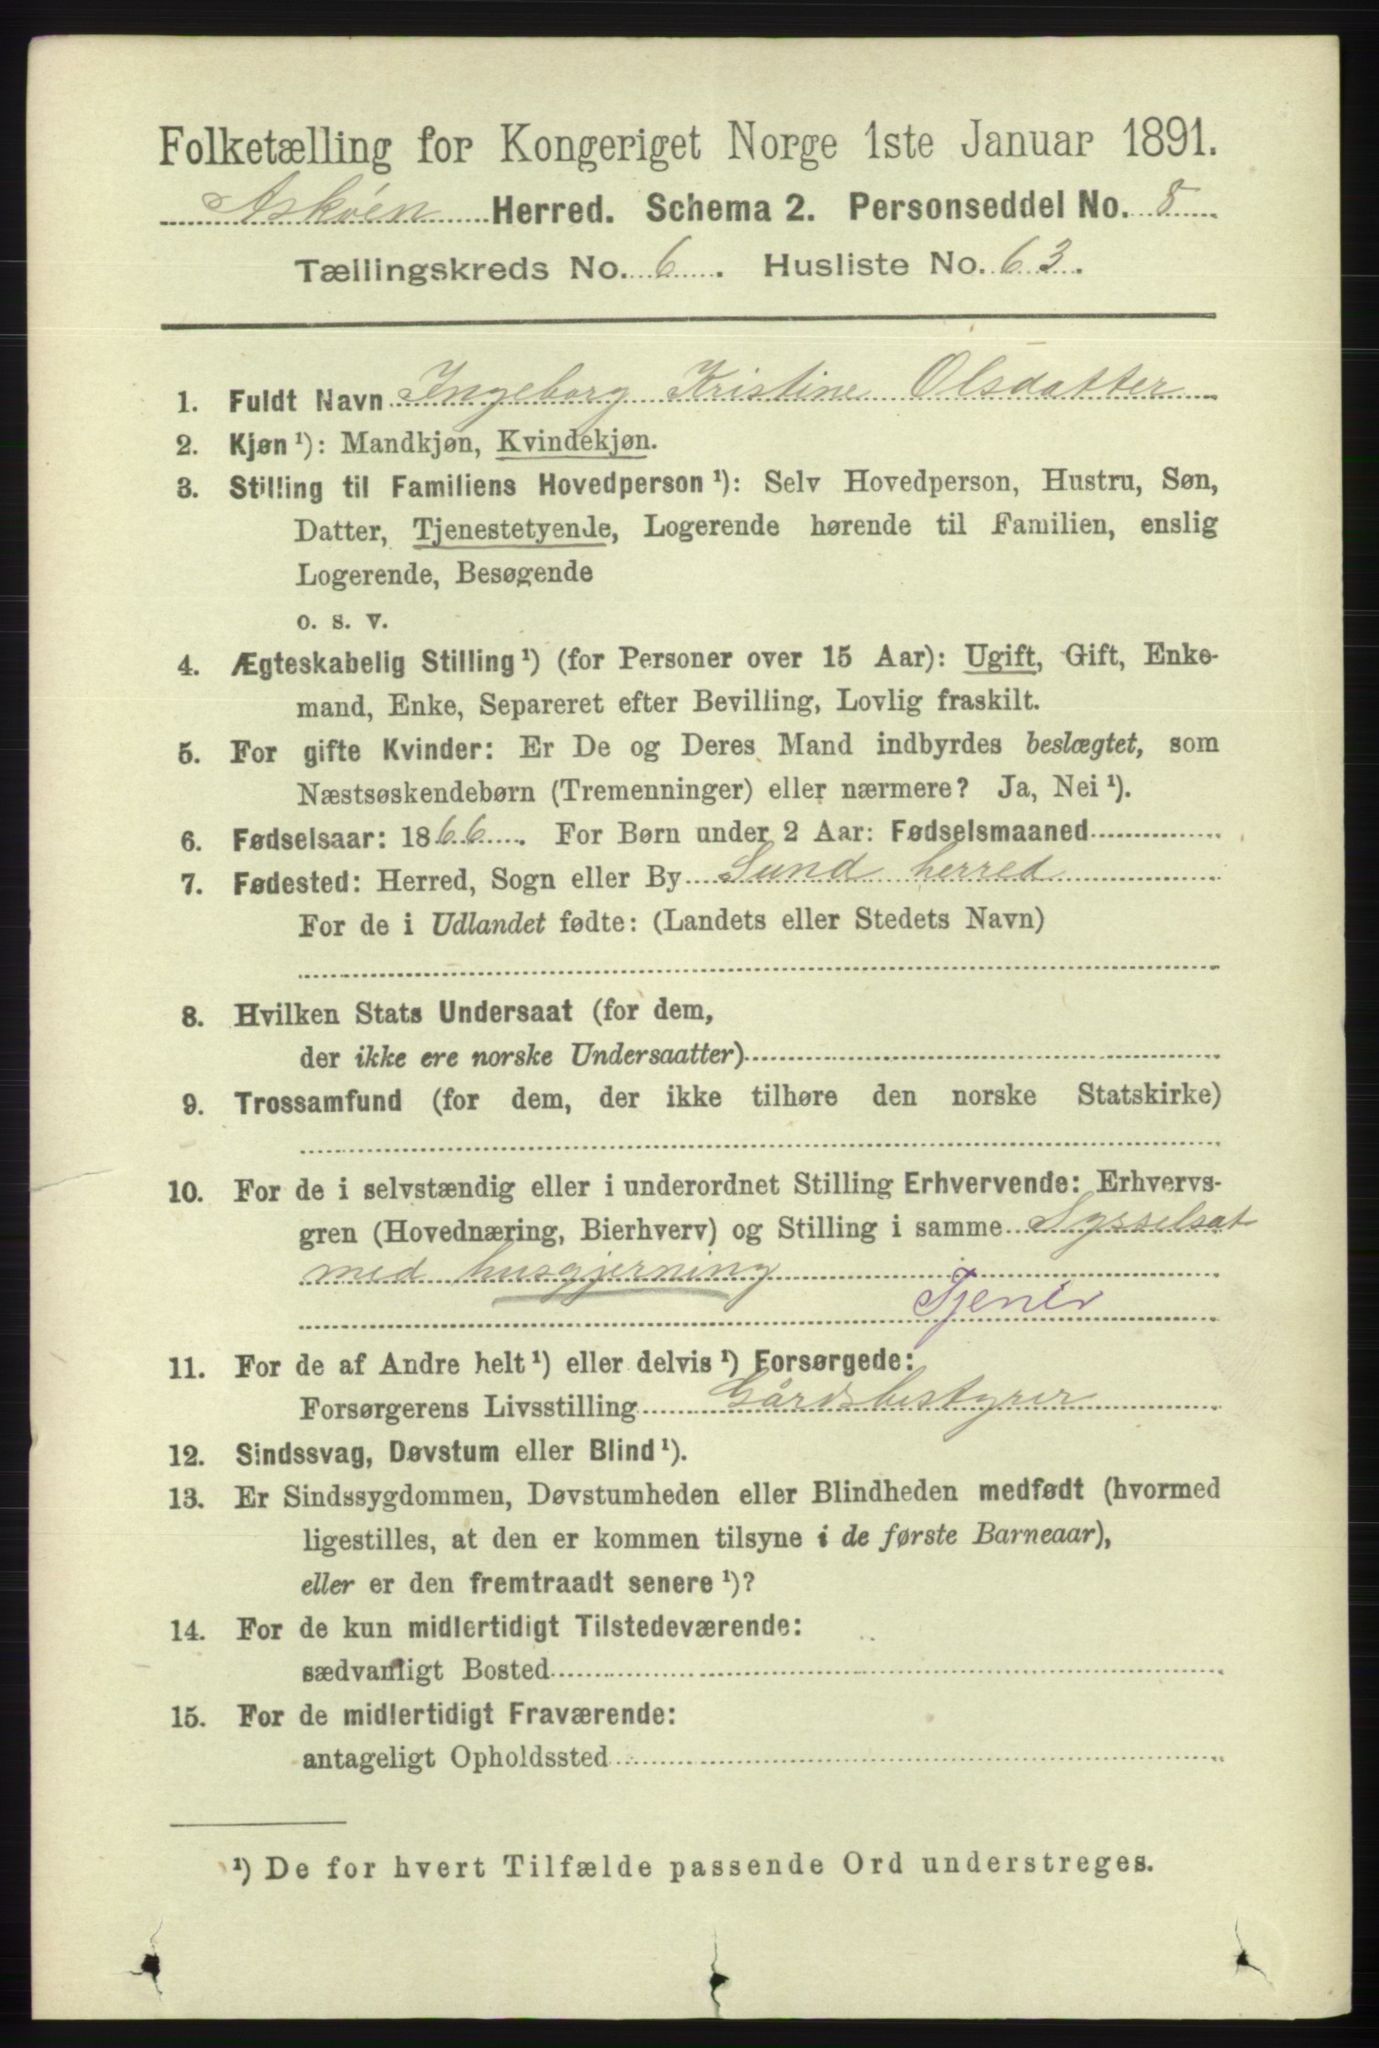 Folketælling for Kongeriget Norge 1ste Januar 1891.
Askøen Herred. Schema 2. Personseddel No. 8
Tællingskreds No. 6. Husliste No. 63.
1. Fuldt Navn Ingeborg Kristine Olsdatter
2. Kjøn ¹): Mandkjøn, Kvindekjøn.
3. Stilling til Familiens Hovedperson ¹): Selv Hovedperson, Hustru, Søn,
Datter, Tjenestetyende, Logerende hørende til Familien, enslig
Logerende, Besøgende
o. s. v.
4. Ægteskabelig Stilling ¹) (for Personer over 15 Aar): Ugift, Gift, Enke-
mand, Enke, Separeret efter Bevilling, Lovlig fraskilt.
5. For gifte Kvinder: Er De og Deres Mand indbyrdes beslægtet, som
Næstsøskendebørn (Tremenninger) eller nærmere? Ja, Nei ¹).
6. Fødselsaar: 1866. For Børn under 2 Aar: Fødselsmaaned
7. Fødested: Herred, Sogn eller By Sund herred
For de i Udlandet fødte: (Landets eller Stedets Navn)
8. Hvilken Stats Undersaat (for dem,
der ikke ere norske Undersaatter)
9. Trossamfund (for dem, der ikke tilhøre den norske Statskirke)
10. For de i selvstændig eller i underordnet Stilling Erhvervende: Erhvervs-
gren (Hovednæring, Bierhverv) og Stilling i samme Sysselsat
med husgjerning
Tjener
11. For de af Andre helt ¹) eller delvis ¹) Forsørgede:
Forsørgerens Livsstilling Gårdsbestyrer
12. Sindssvag, Døvstum eller Blind ¹).
13. Er Sindssygdommen, Døvstumheden eller Blindheden medfødt (hvormed
ligestilles, at den er kommen tilsyne i de første Barneaar),
eller er den fremtraadt senere ¹)?
14. For de kun midlertidigt Tilstedeværende:
sædvanligt Bosted
15. For de midlertidigt Fraværende:
antageligt Opholdssted
¹) De for hvert Tilfælde passende Ord understreges.